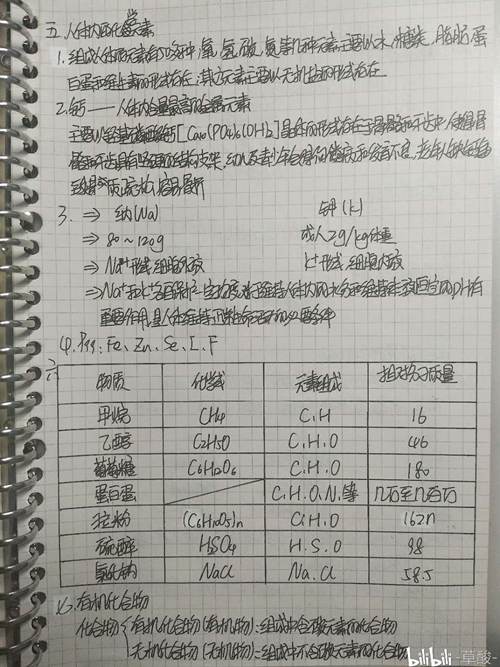 五、人体内的化学元素
1.组成人体的元素有50多种,氧、氢、碳、氮等几种元素主要以水、糖类、脂肪、蛋
白蛋和维生素的形式存在,其它元素主要以无机盐的形式存在
2.钙——人体内含量最高的金属元素
主要以羟基磷酸钙[Ca10(PO4)6(OH)2]晶体的形式存在于骨骼和牙齿中,使得骨
骼和牙齿具有坚硬的结构支架,幼儿及青少年会得佝偻病和发育不良,老年人缺钙会
3. ⇒ 纳(Na) 钾(K)
⇒ 80~120g 成人2g/kg体重
⇒ Na+形式 细胞外液 K+形式 细胞内液
⇒Na+和K+
4.P99:Fe、Zn、Se、I、F
物质 化学式 元素组成 相对分子质量
甲烷 CH4 C、H 16
乙醇 C2H5O C、H、O 46
葡萄糖 C6H12O6 C、H、O 180
蛋白蛋 C、H、O、N、等 几万至几百万
淀粉 (C6H10O5)n C、H、O 162n
硫酸 H2SO4 H、S、O 98
氯化钠 NaCl Na、Cl 58.5
有机化合物
化合物{有机化合物(有机物):组成中含碳元素的化合物
无机化合物(无机物):组成中不含碳元素的化合物
bilibili -草酸-